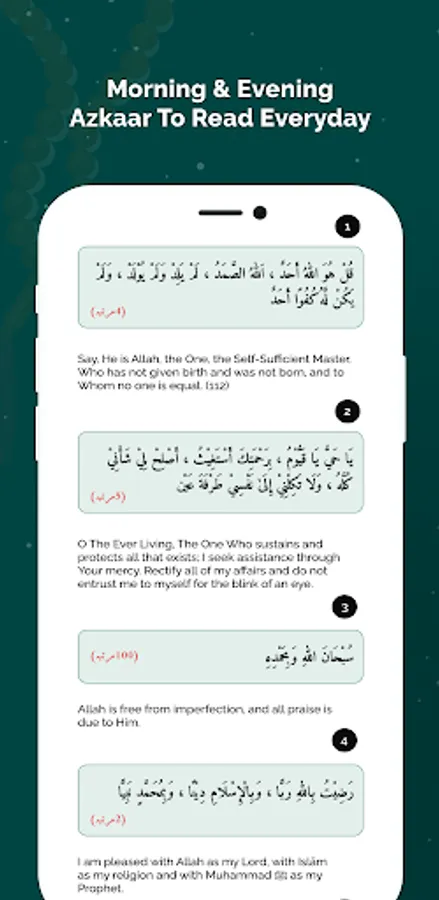 Morning & Evening
Azkaar To Read Everyday
1
قُلْ هُوَ اللهُ أَحَدٌ ، اَللهُ الصَّمَدُ ، لَمْ يَلِدْ وَلَمْ يُوْلَدْ ، وَلَمْ
يَكُنْ لَّهُ كُفُوًا أَحَدٌ
Say, He is Allah, the One, the Self-Sufficient Master,
Who has not given birth and was not born, and to
Whom no one is equal. (112)
2
يَا حَيُّ يَا قَيُّوْمُ ، بِرَحْمَتِكَ أَسْتَغِيْثُ ، أَصْلِحْ لِيْ شَأْنِيْ
كُلَّهُ ، وَلَا تَكِلْنِيْ إِلَىٰ نَفْسِيْ طَرْفَةَ عَيْن
O The Ever Living, The One Who sustains and
protects all that exists; I seek assistance through
Your mercy. Rectify all of my affairs and do not
entrust me to myself for the blink of an eye.
3
سُبْحَانَ اللهِ وَبِحَمْدِهِ
(100مرتبہ)
Allah is free from imperfection, and all praise is
due to Him.
4
رَضِيْتُ بِاللهِ رَبًّا ، وَبِالْإِسْلَامِ دِيْنًا ، وَبِمُحَمَّدٍ نَبِيًّا
I am pleased with Allah as my Lord, with Islām
as my religion and with Muhammad ﷺ as my
Prophet.